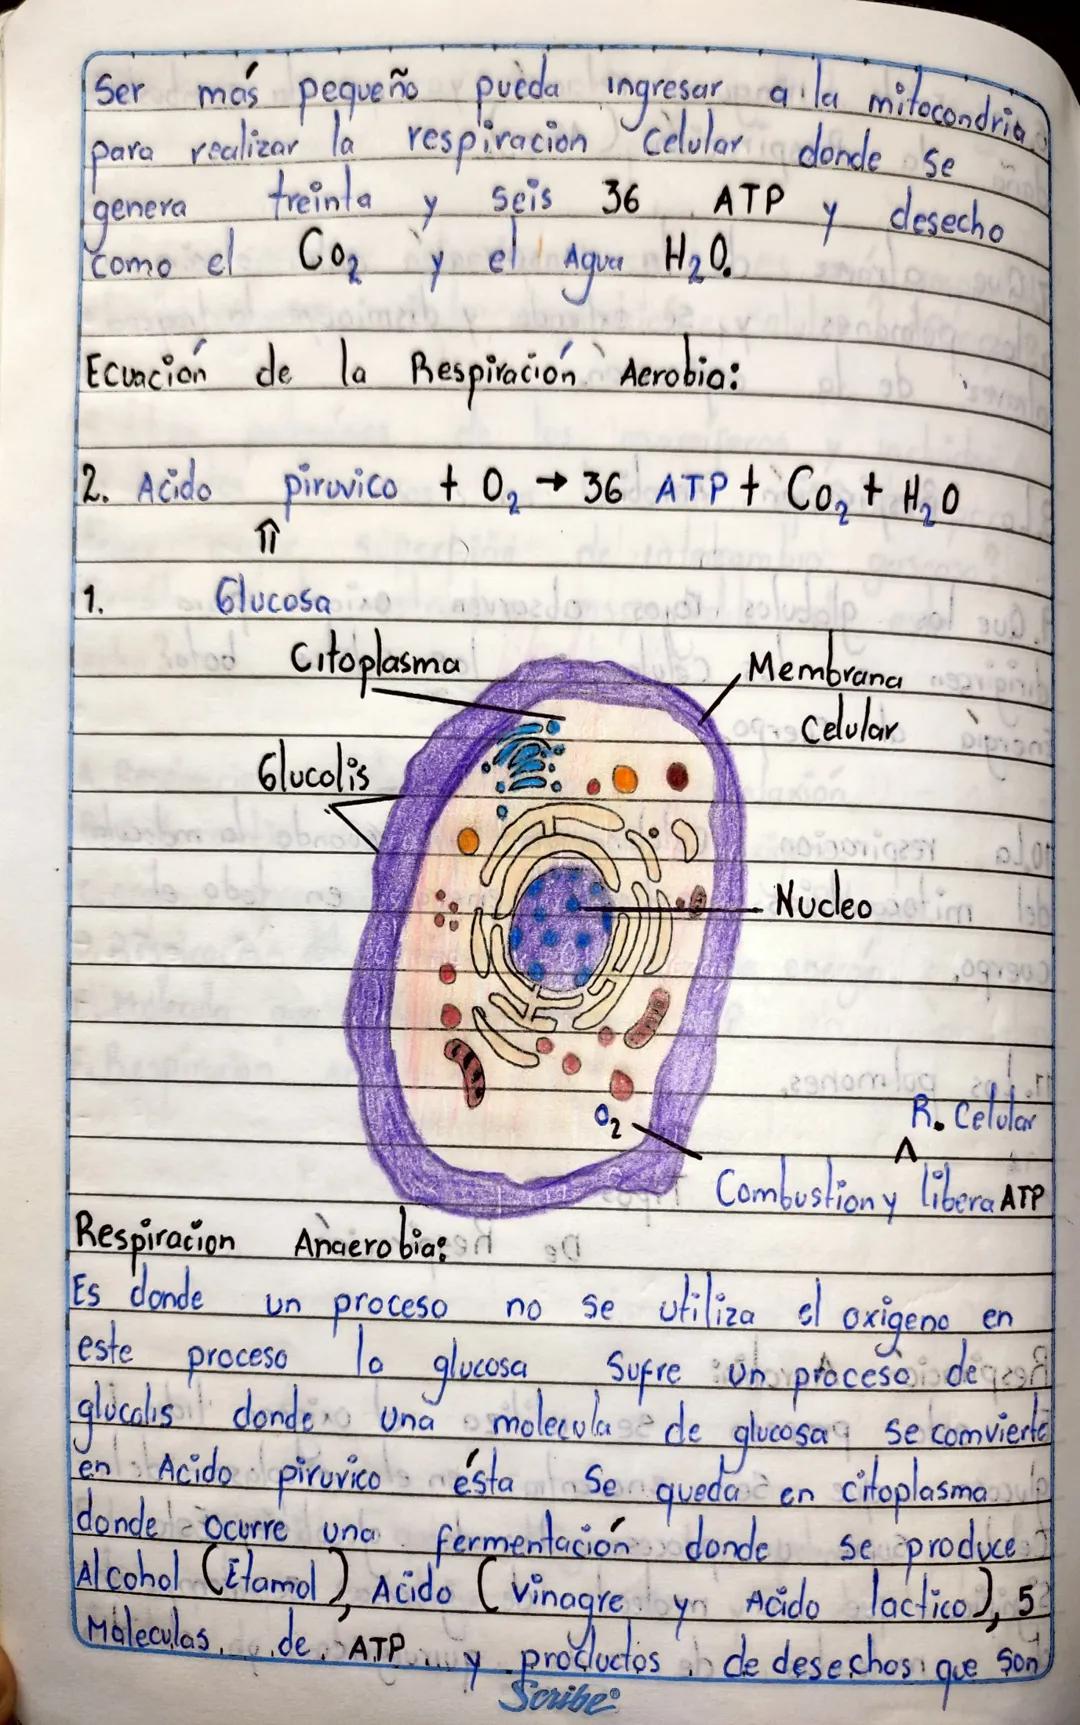 Ser más pequeño puèda ingresar a la mitocondria
para realizar la respiracion Celular donde se
genera treinta y seis 36 ATP y desecho
como el Co2 y el Agua H2O.
Ecuación de la Respiración Aerobia:
2. Acido piruvico + O2 → 36 ATP + Co2 + H2O
⇑
1. Glucosa
Citoplasma
Membrana
Celular
Glucolis
Nucleo
O2
R. Celular
^
Combustion y libera ATP
Respiracion Anaerobia:
Es donde un proceso no se utiliza el oxigeno en
este proceso la glucosa Sufre un proceso de
glucolis donde una molecula de glucosa se comvierte
en Acido piruvico ésta Se queda en citoplasma
donde ocurre una fermentación donde se produce
Alcohol (Etamol), Acido (Vinagre y Acido lactico), 5
Moleculas de ATP y productos de desechos que son
Scribe